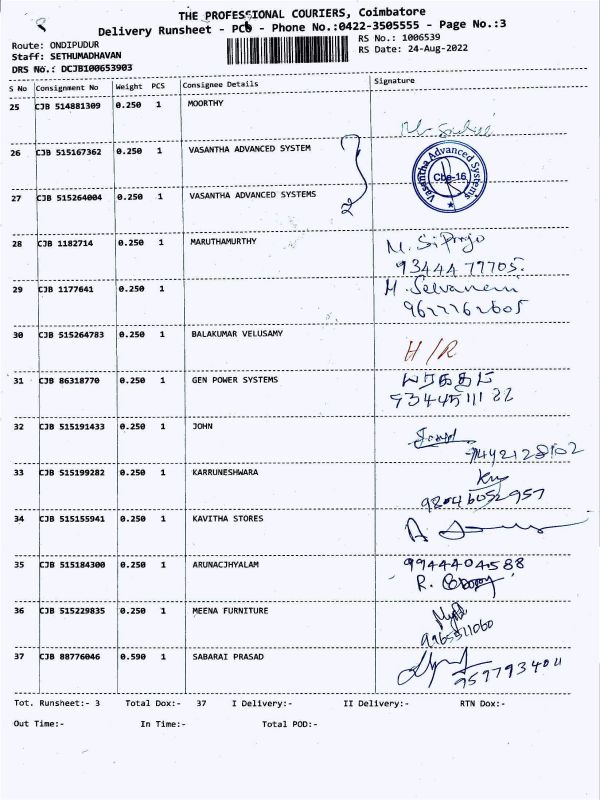 THE PROFESSIONAL COURIERS, Coimbatore
Delivery Runsheet - PCO - Phone No.:0422-3505555 - Page No.:3
Route: ONDIPUDUR RS No.: 1006539
Staff: SETHUMADHAVAN RS Date: 24-Aug-2022
DRS No.: DCJB100653903
S No Consignment No Weight PCS Consignee Details Signature
25 CJB 514881309 0.250 1 MOORTHY
26 CJB 515167362 0.250 1 VASANTHA ADVANCED SYSTEM
Vasantha Advanced Systems
Cbe-16
27 CJB 515264004 0.250 1 VASANTHA ADVANCED SYSTEMS
28 CJB 1182714 0.250 1 MARUTHAMURTHY
93444 77705.
29 CJB 1177641 0.250 1 M. Selvaneni
9622262605
30 CJB 515264783 0.250 1 BALAKUMAR VELUSAMY H/R
31 CJB 86318770 0.250 1 GEN POWER SYSTEMS
9344511122
32 CJB 515191433 0.250 1 JOHN
9442128102
33 CJB 515199282 0.250 1 KARRUNESHWARA
34 CJB 515155941 0.250 1 KAVITHA STORES
35 CJB 515184300 0.250 1 ARUNACJHYALAM 9944404588
36 CJB 515229835 0.250 1 MEENA FURNITURE
9965511060
37 CJB 88776046 0.590 1 SABARAI PRASAD
9597793401
Tot. Runsheet:- 3 Total Dox:- 37 I Delivery:- II Delivery:- RTN Dox:-
Out Time:- In Time:- Total POD:-